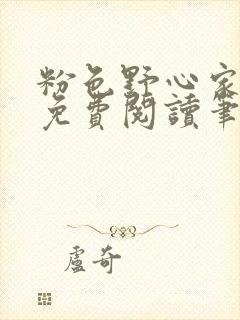 粉色野心家
免費閱讀筆
盧奇